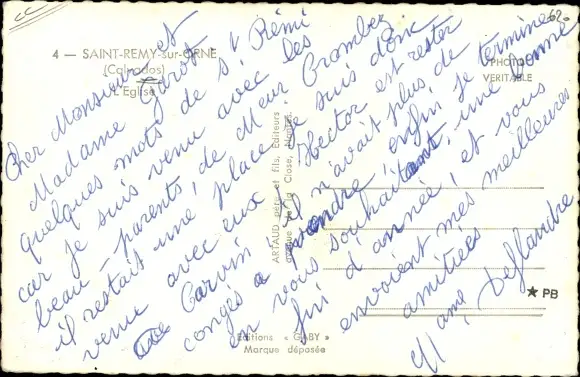 4 — SAINT-REMY-sur-ORNE
(Calvados)
L'Eglise
PHOTO
VERITABLE
62
Cher Monsieur et
Madame Garot
quelques mots de St Rémi
car je suis venu avec les
beau-parents, de Meur Crombez
il restait une place je suis donc
venu avec eux Hector est rester
a Carvin il n'avait plus de
congés a prendre enfin je termine
en vous souhaitant, une bonne
fin d'année, et vous
envoient mes meilleures
amitiées
Mame Deflandre
ARTAUD père et fils, Editeurs
de la Close, Nantes
Editions « GABY »
Marque déposée
★ PB